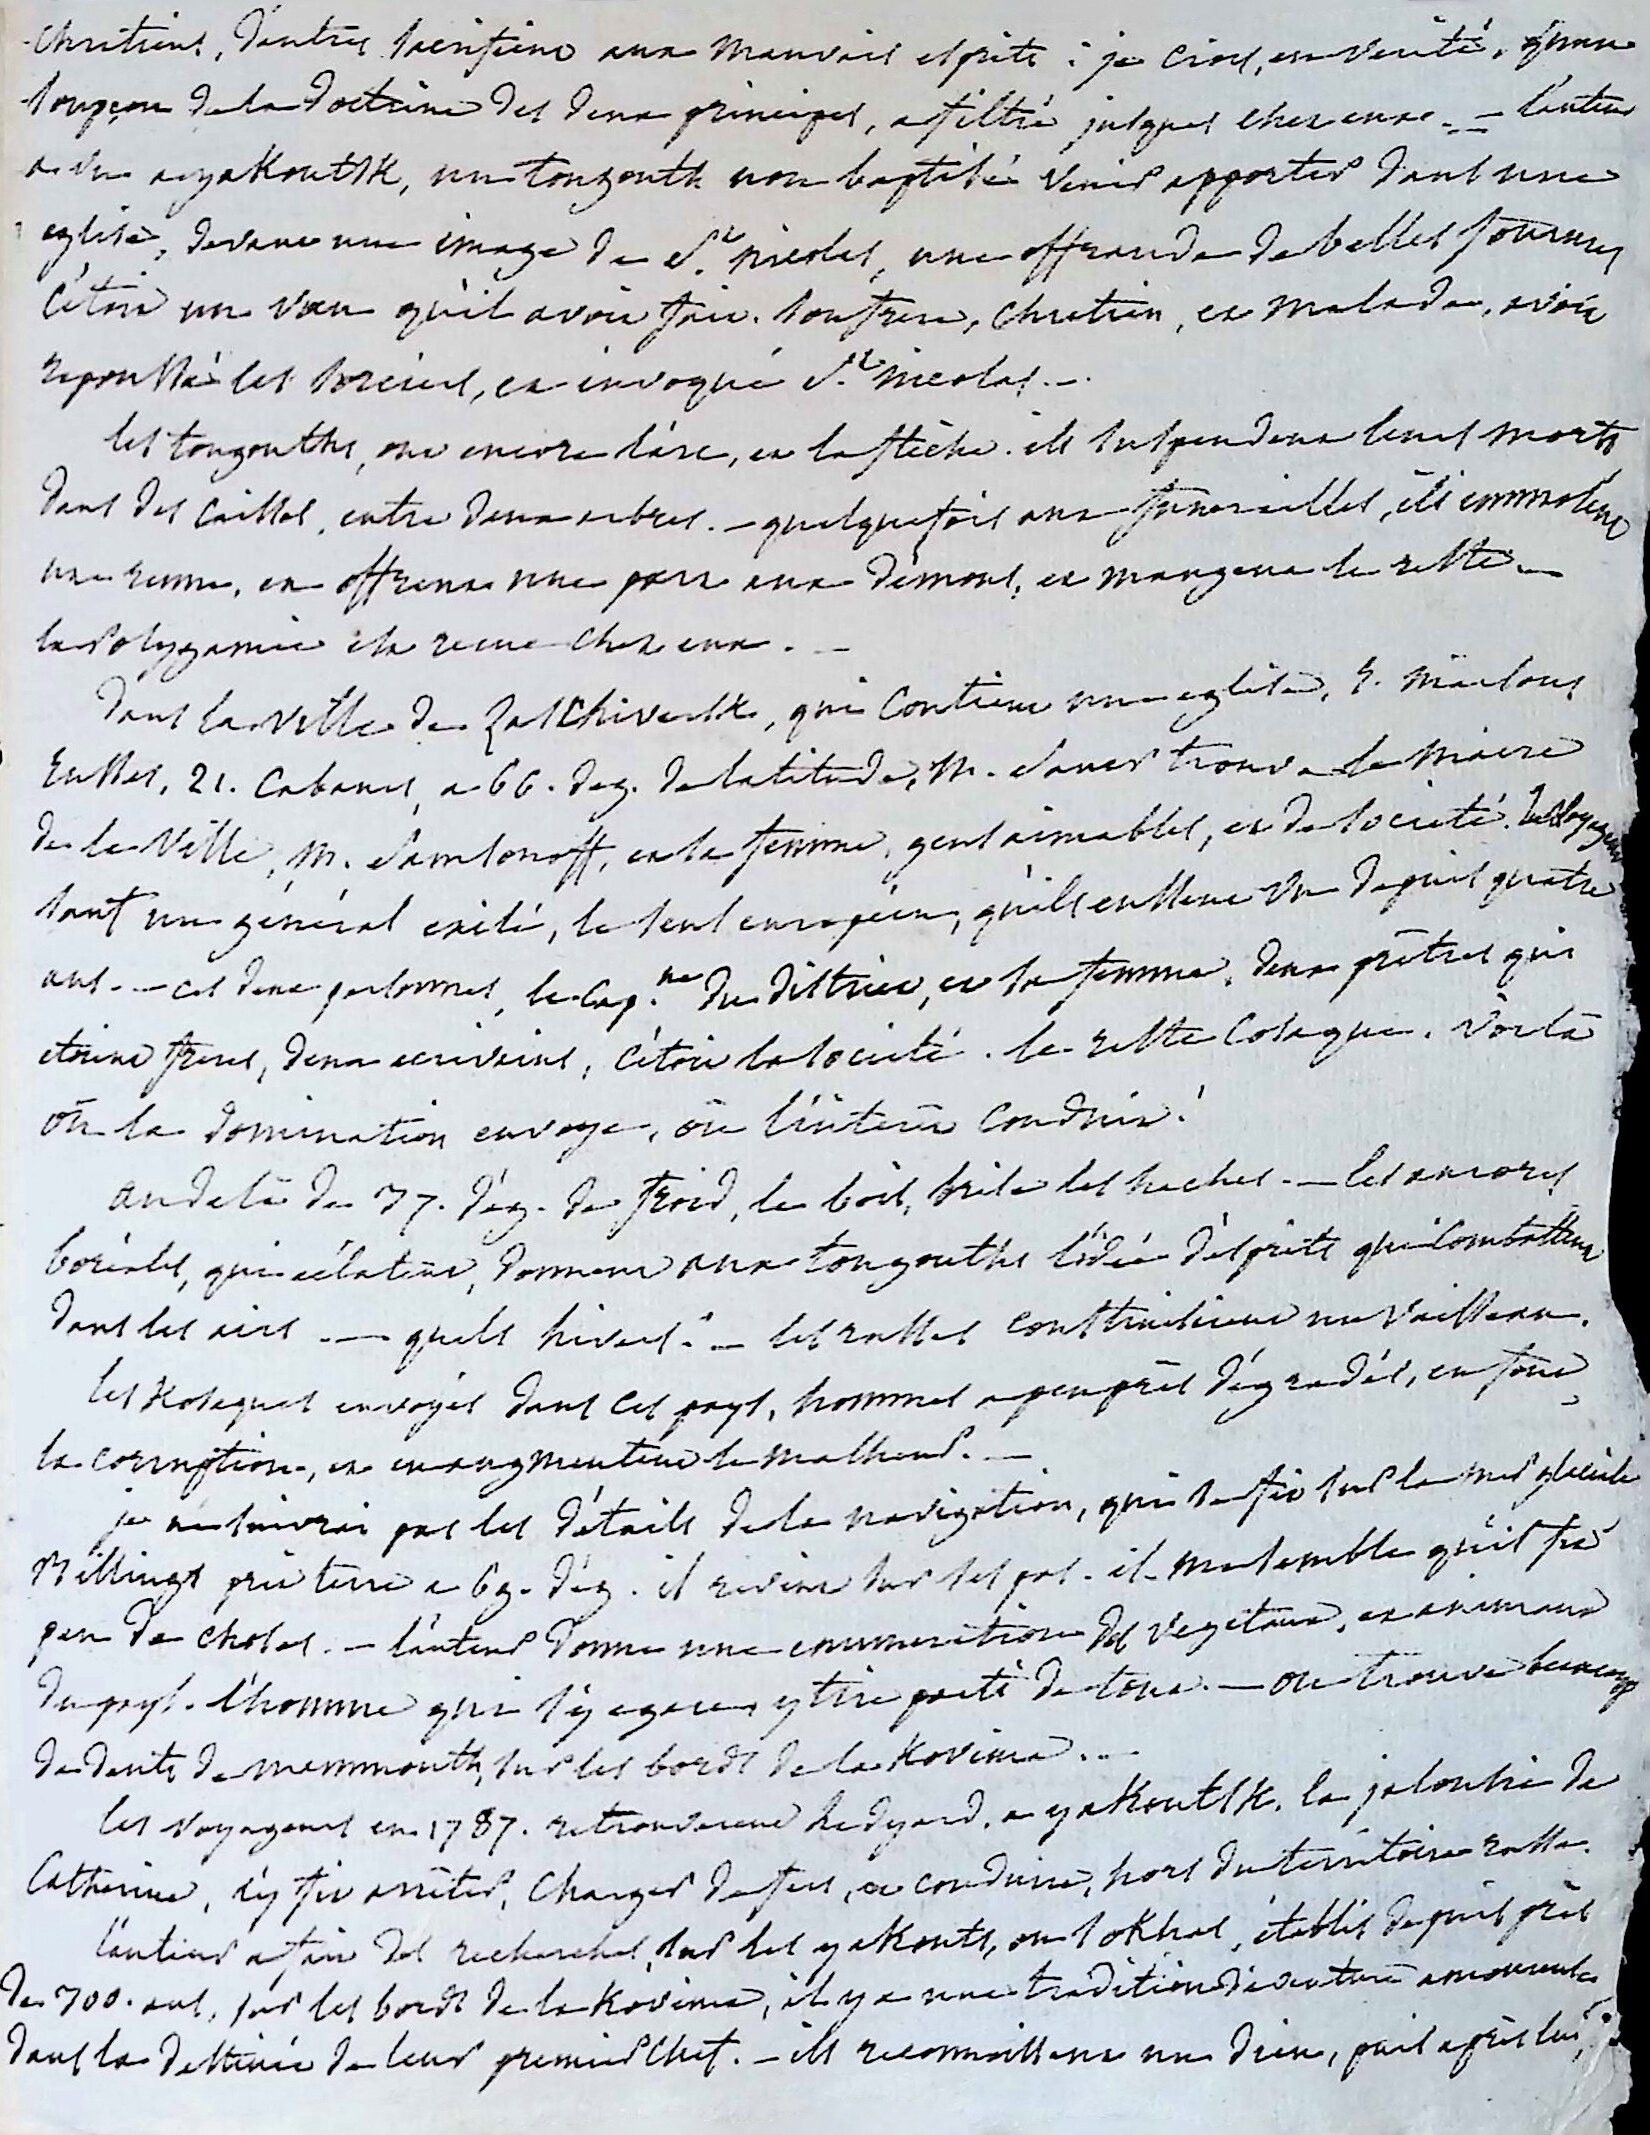 chretiens, d'autres sacrifient aux mauvais esprits : je crois, en verité, qu'un
soupçon de la doctrine des deux principes, a filtré jusques chez eux. — l'auteur
a vu a yakoutsk, un tongouth non baptisé venir apporter dans une
eglise, devant une image de St. nicolas, une offrande de belles fourrures
c'étoit un vœu qu'il avoit fait. son frere, chretien, et malade, avoit
repoussé les sorciers, et invoqué St. nicolas. —
les tongouths, ont encore l'arc, et la flèche. ils suspendent leurs morts
dans des caisses, entre deux arbres. — quelquefois aux funerailles, ils immolent
une renne, en offrent une part aux démons, et mangent le reste. —
la polygamie est reçue chez eux. —
dans la ville de Zaschiversk, qui contient une eglise, 5. maisons
russes, 21. cabanes, a 66. deg. de latitude, M. Sauer trouva le maire
de la ville, M. Samsonoff, et sa femme, gens aimables, et de societé. les voyageurs
sauf un général exilé, le seul européen, qu'ils eussent vu depuis quatre
ans. — ces deux personnes, le cap.ne du district, et sa femme, deux prêtres qui
etoient freres, deux ecrivains, c'étoit la societé. le reste cosaque. voila
où la domination envoye, où l'intérêt conduit !
au dela de 37. dég. de froid, le bois, brise les haches. — les aurores
boréales, qui éclatent, donnent aux tongouths l'idée d'esprits qui combattent
dans les airs. — quels hivers ! — les russes construisirent un vaisseau.
les kosaques envoyés dans ces pays, hommes a peu près dégradés, en font
la corruption, et en augmentent le malheur. —
je ne suivrai pas les détails de la navigation, qui se fit sur la mer glaciale
Billings prit terre a 69. dég. il revint sur ses pas. il me semble qu'il fit
peu de choses. — l'auteur donne une enumeration des vegetaux, et animaux
du pays. l'homme qui s'y egare, y tire parti de tout. — on trouve beaucoup
de dents de memmouth, sur les bords de la Kovima. —
les voyageurs en 1787. retrouverent Ledyard, a yakoutsk. la jalousie de
Catherine, l'y fit arrêter, charger de fers, et conduire, hors du territoire russe.
l'auteur a fait des recherches, sur les yakouts, ou sokhas, établis depuis près
de 300. ans, sur les bords de la Kovima, il y a une tradition d'aventure amoureuse
dans la destinée de leur premier chef. — ils reconnoissent un dieu, puis après lui,